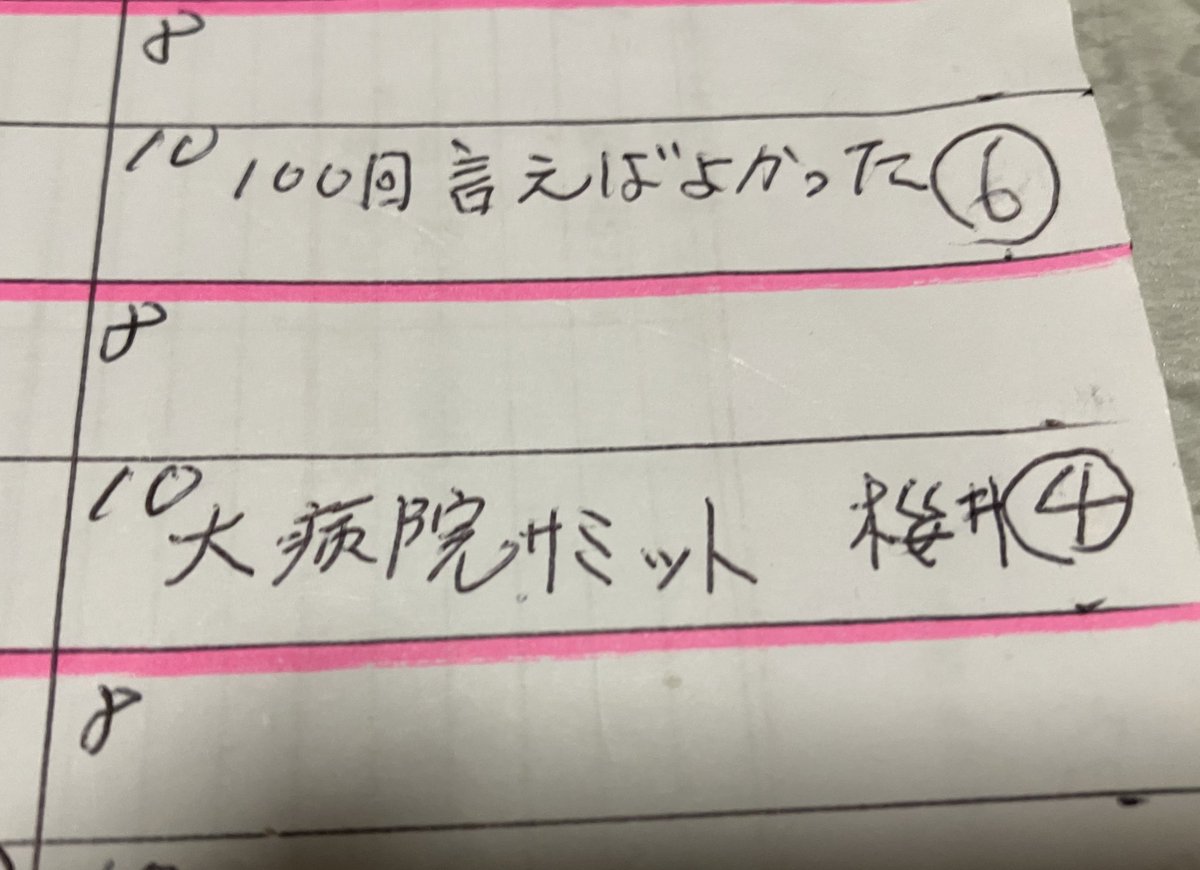 8
10 100回言えばよかった⑥
8
10 大病院サミット 桜井④
8